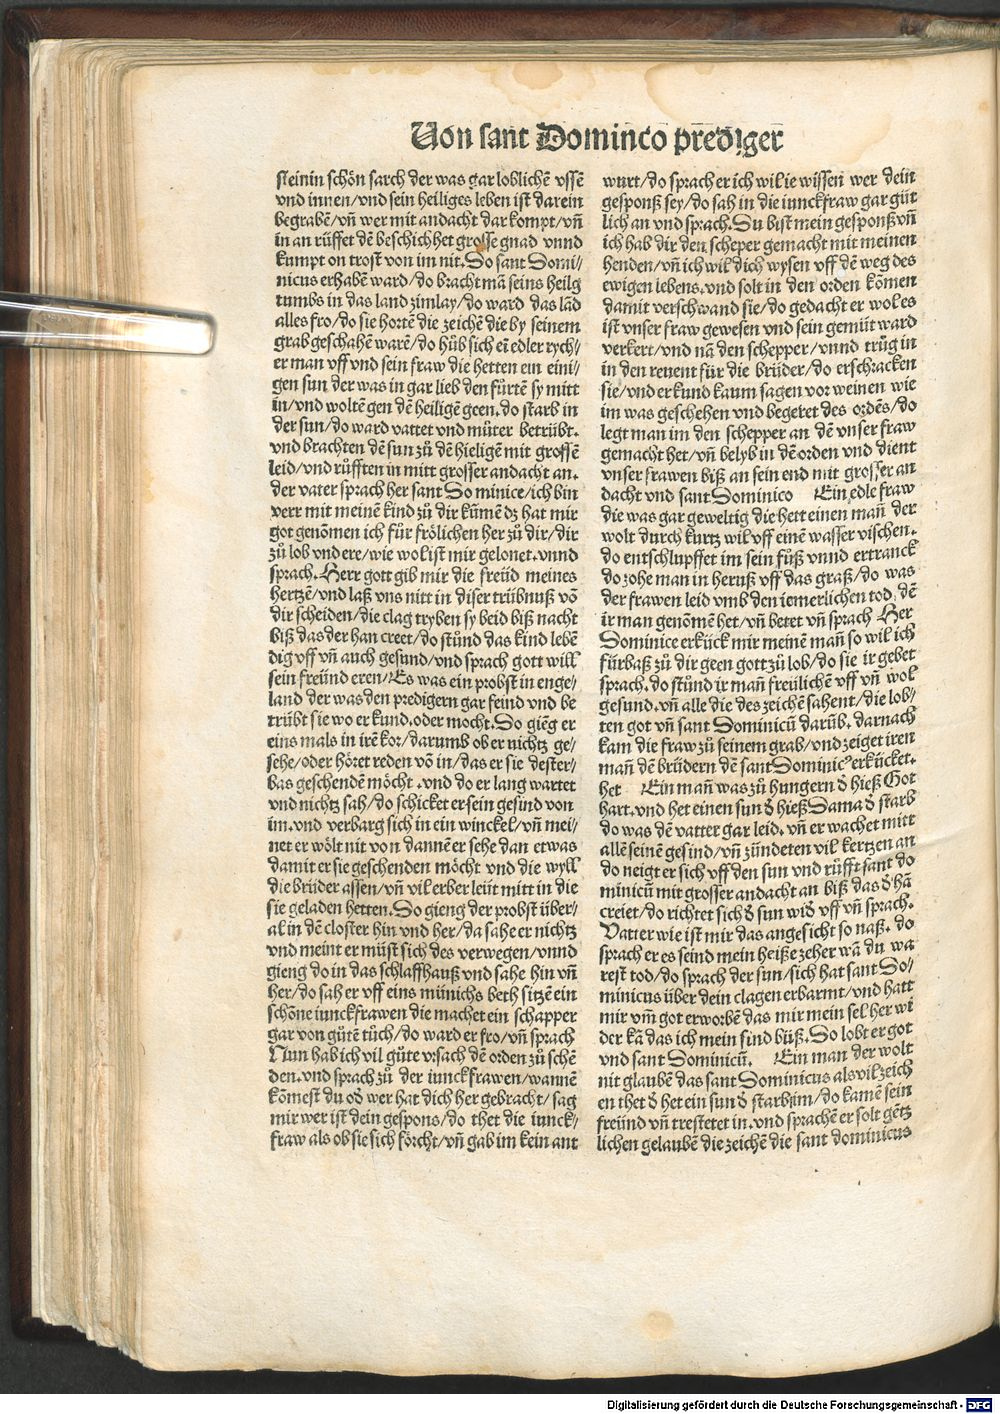 Von sant Dominco prēdiger
steinin schön sarch der was gar loblichē vssē
vnd innen/vnd sein heiliges leben ist darein
begrabē/vn̄ wer mit andacht dar kompt/vn̄
in an rüffet dē beschichhet grosse gnad vnnd
kumpt on trost von im nit. Do sant Domi//
nicus erhabē ward/do bracht mā seins heilg
tumbs in das land zimlay/do ward das lād
alles fro/do sie hortē die zeichē die by seinem
grab geschahē warē/do hůb sich eī edler rych//
er man vff vnd sein fraw die hetten ein eini//
gen sun der was in gar lieb den fürtē sy mitt
in/vnd woltē gen dē heiligē geen. do starb in
der sun/do ward vattet vnd můter betrübt.
vnd brachten dē sun zů dē hieligē mit grossē
leid/vnd růfften in mitt grosser andacht an.
der vater sprach her sant Do minice/ich bin
verr mit meinē kind zů dir kūmē dz hat mir
got genōmen ich für frölichen her zů dir/dir
zů lob vnd ere/wie wol ist mir gelonet. vnnd
sprach. Herr gott gib mir die freüd meines
hertzē/vnd laß vns nitt in diser trübnuß vō
dir scheiden/die clag tryben sy beid biß nacht
biß das der han creet/do stůnd das kind lebē
dig vff vn̄ auch gesund/vnd sprach gott will
sein freünd eren/Es was ein probst in enge//
land der was den predigern gar feind vnd be
trübt sie wo er kund. oder mocht. Do giēg er
eins mals in irē kor/darumb ob er nichtz ge//
sehe/oder höret reden vō in/das er sie dester//
bas geschendē möcht. vnd do er lang wartet
vnd nichtz sah/do schicket er sein gesind von
im. vnd verbarg sich in ein winckel/vn̄ mei//
net er wölt nit von dannē er sehe dan etwas
damit er sie geschenden möcht vnd die wyll
die brüder assen/vn̄ vil erber leüt mitt in die
sie geladen hetten. Do gieng der probst über//
al in dē closter hin vnd her/da sahe er nichtz
vnd meint er müst sich des verwegen/vnnd
gieng do in das schlaffhauß vnd sahe hin vn̄
her/do sah er vff eins münichs beth sitzē ein
schöne iunckfrawen die machet ein schapper
gar von gůtē tůch/do ward er fro/vn̄ sprach
Nun hab ich vil gůte vrsach dē orden zů schē
den. vnd sprach zů der iunckfrawen/wannē
kōmest du od̄ wer hat dich her gebracht/sag
mir wer ist dein gespons/do thet die iunck//
fraw als ob sie sich förcht/vn̄ gab im kein ant
wurt/do sprach er ich wil ie wissen wer dein
gesponß sey/do sah in die iunckfraw gar güt
lich an vnd sprach. Du bist mein gesponß vn̄
ich hab dir den scheper gemacht mit meinen
henden/vn̄ ich wil dich wysen vff dē weg des
ewigen lebens. vnd solt in den orden kōmen
damit verschwand sie/do gedacht er wol es
ist vnser fraw gewesen vnd sein gemüt ward
verkert/vnd nā den schepper/vnnd trůg in
in den reuent für die brüder/do erschracken
sie/vnd er kund kaum sagen vor weinen wie
im was geschehen vnd begeret des ordēs/do
legt man im den schepper an dē vnser fraw
gemacht het/vn̄ belyb in dē orden vnd dient
vnser frawen biß an sein end mit grosser an
dacht vnd sant Dominico Ein edle fraw
die was gar geweltig die hett einen man̄ der
wolt durch kurtz wil vff einē wasser vischen.
do entschlupffet im sein fůß vnnd ertranck
do zohe man in heruß vff das graß/do was
der frawen leid vmb den iemerlichen tod. dē
ir man genōmē het/vn̄ betet vn̄ sprach Her
Dominice erkück mir meinē man̄ so wil ich
fürbaß zů dir geen gott zů lob/do sie ir gebet
sprach. do stůnd ir man̄ freülichē vff vn̄ wol
gesund. vn̄ alle die des zeichē sahent/die lob//
ten got vn̄ sant Dominicū darūb. darnach
kam die fraw zů seinem grab/vnd zeiget iren
man̄ dē brüdern dē sant Dominic⁹ erkücket.
het Ein man̄ was zů hungern d̄ hieß Got
hart. vnd het einen sun d̄ hieß Dama d̄ starb
do was dē vatter gar leid. vn̄ er wachet mitt
allē seinē gesind/vn̄ zündeten vil kertzen an
do neigt er sich vff den sun vnd růfft sant do
minicū mit grosser andacht an biß das d̄ hā
creiet/do richtet sich d̄ sun wid̄ vff vn̄ sprach.
Vatter wie ist mir das angesicht so naß. do
sprach er es seind mein heiße zeher wā du wa
rest tod/do sprach der sun/sich hat sant Do//
minicus über dein clagen erbarmt/vnd hatt
mir vm̄ got erworbē das mir mein sel her wi
der kā das ich mein sünd büß. Do lobt er got
vnd sant Dominicū. Ein man der wolt
nit glaubē das sant Dominicus als vil zeich
en thet d̄ het ein sun d̄ starb im/do kamē sein
freünd vn̄ trestetet in. vnd sprachē er solt gētz
lichen gelaubē die zeichē die sant dominicus
Digitalisierung gefördert durch die Deutsche Forschungsgemeinschaft - DFG